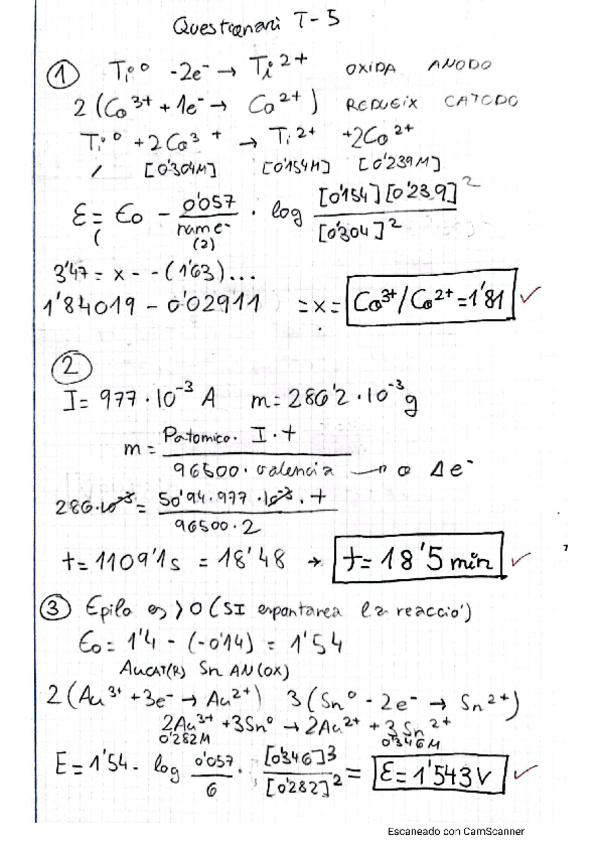 Questionari T-5
① Ti⁰ -2e⁻ → Ti²⁺ OXIDA ANODO
2 (Co³⁺ + 1e⁻ → Co²⁺) REDUEIX CATODO
Ti⁰ + 2Co³⁺ → Ti²⁺ + 2Co²⁺
/ [0'304M] [0'154M] [0'239M]
ε = ε₀ - 0'057 / num e⁻ (2) · log [0'154][0'239]² / [0'304]²
3'47 = x - - (1'63)...
1'84019 - 0'02911 = x = Co³⁺/Co²⁺ = 1'81 ✓
②
I = 977·10⁻³ A m = 286'2·10⁻³ g
m = Patomico · I · t / 96500 · valencia → o Δe⁻
286·10⁻³ = 50'94·977·10⁻³·t / 96500·2
t = 1109'1s = 18'48 → t = 18'5 min ✓
③ Epila es >0 (SI espontanea la reacció)
ε₀ = 1'4 - (-0'14) = 1'54
Au CAT(R) Sn AN(OX)
2 (Au³⁺ + 3e⁻ → Au²⁺) 3 (Sn⁰ - 2e⁻ → Sn²⁺)
2Au³⁺ + 3Sn⁰ → 2Au²⁺ + 3Sn²⁺
0'282M 0'346M
E = 1'54 - log 0'057 / 6 · [0'346]³ / [0'282]² = ε = 1'543 V ✓
Escaneado con CamScanner